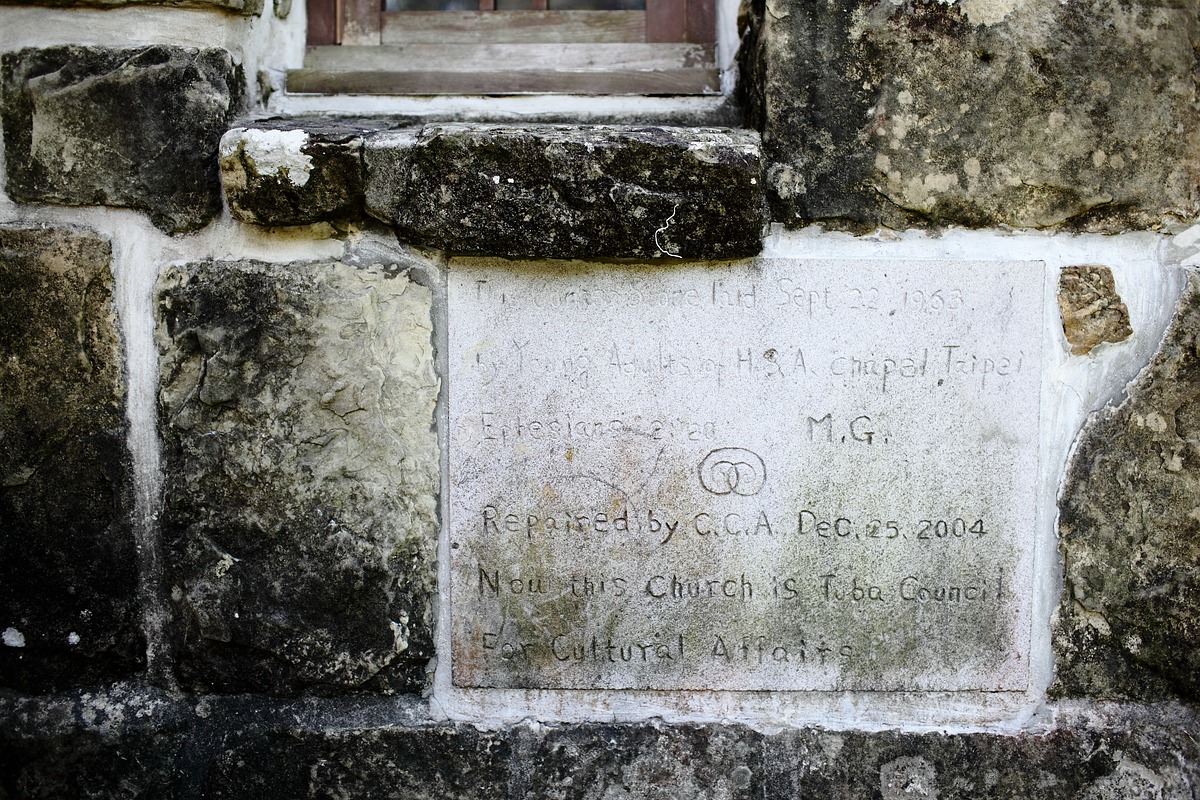 This cornerstone laid Sept 22, 1963.
by Young Adults of H.S.A. chapel Taipei
Ephesians 2:20 M.G.
Repaired by C.C.A. Dec. 25. 2004
Now this Church is Tuba Council
For Cultural Affairs